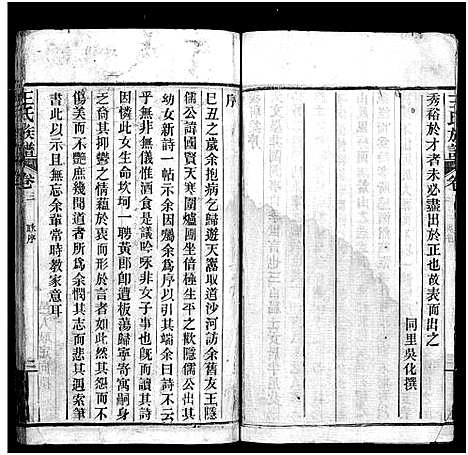 王氏族譜 卷
秀裕於才者未必盡出於正也故表而出之
同里吳化撰
序
巳丑之歲余抱病乞歸遊天嵩取道沙河訪余舊友王隱
儒公諱國賢天寒圍爐團坐傾歡隱儒公出其
幼女新詩一帖示余因囑余爲序以引其端余曰詩不云
乎無非無儀惟酒食是議吟咏非女子事也旣而讀其詩
因憐此女生命坎坷一聘黃郎卽遭板蕩歸寧寄寓嗣身
之裔其抑鬱之情藉於衷而形於言者如此然其怨而不
傷美而不艷庶幾聞道者所爲余憫其志而遇索筆
書此以示且無忘余輩當時教家意耳
王氏族譜 卷二 跋序 二